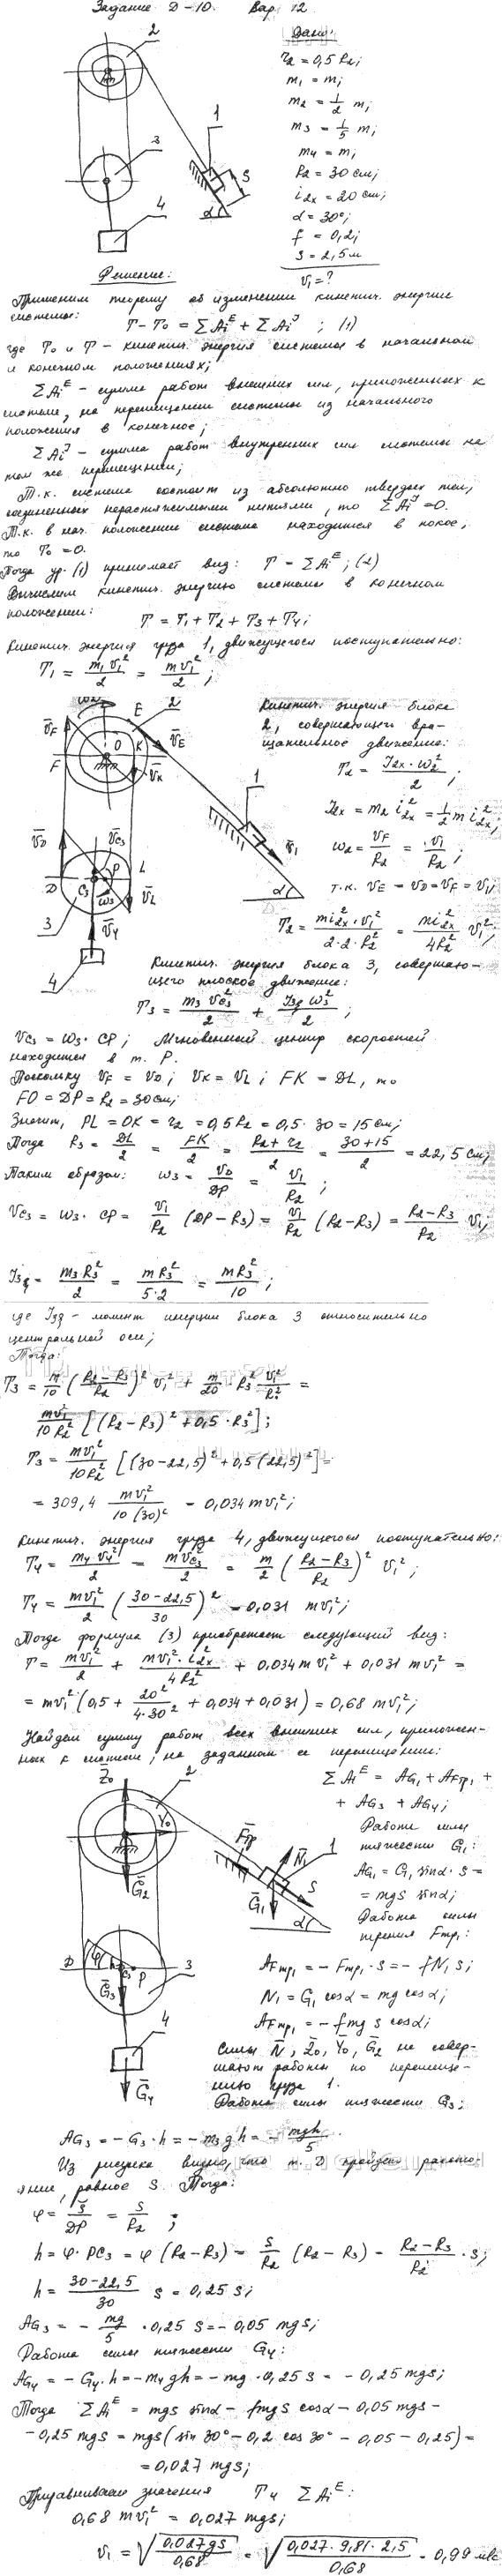 Задание Д-10. Вар. 12
Дано:
r₂ = 0,5 R₂;
m₁ = m;
m₂ = 1/2 m;
m₃ = 1/5 m;
m₄ = m;
R₂ = 30 см;
i₂ₓ = 20 см;
α = 30°;
f = 0,2;
S = 2,5 м
V₁ = ?
2
1
3
4
S
α
Решение:
Применим теорему об изменении кинетич. энергии
системы:
T - T₀ = ΣAᵢᴱ + ΣAᵢᴶ ; (1)
где T₀ и T - кинетич. энергия системы в начальном
и конечном положениях;
ΣAᵢᴱ - сумма работ внешних сил, приложенных к
системе, на перемещении системы из начального
положения в конечное;
ΣAᵢᴶ - сумма работ внутренних сил системы на
том же перемещении;
Т.к. система состоит из абсолютно твердых тел,
соединенных нерастяжимыми нитями, то ΣAᵢᴶ = 0.
Т.к. в нач. положении система находится в покое,
то T₀ = 0.
Тогда ур. (1) принимает вид: T = ΣAᵢᴱ; (2)
Вычислим кинетич. энергию системы в конечном
положении:
T = T₁ + T₂ + T₃ + T₄;
Кинетич. энергия груза 1, движущегося поступательно:
T₁ = m₁V₁²/2 = mV₁²/2 ;
ω₂ E 2
V̄F V̄E O K V̄K F
V̄D V̄C₃ P L D C₃ ω₃ V̄L
3 V̄₄ 4
1 V̄₁ α
Кинетич. энергия блока
2, совершающего вра-
щательное движение:
T₂ = J₂ₓ · ω₂²/2 ;
J₂ₓ = m₂ i₂ₓ² = 1/2 m i₂ₓ²;
ω₂ = VF/R₂ = V₁/R₂ ;
т.к. VE = VD = VF = V₁;
T₂ = m i₂ₓ² · V₁²/(2·2·R₂²) = m i₂ₓ²/(4R₂²) V₁²;
Кинетич. энергия блока 3, совершаю-
щего плоское движение:
T₃ = m₃VC₃²/2 + J₃ξ ω₃²/2 ;
VC₃ = ω₃ · CP; Мгновенный центр скоростей
находится в т. P.
Поскольку VF = VD ; VK = VL ; FK = DL, то
FO = DP = R₂ = 30 см;
Значит, PL = OK = r₂ = 0,5 R₂ = 0,5 · 30 = 15 см;
Тогда R₃ = DL/2 = FK/2 = (R₂ + r₂)/2 = (30 + 15)/2 = 22,5 см;
Таким образом: ω₃ = VD/DP = V₁/R₂ ;
VC₃ = ω₃ · CP = V₁/R₂ (DP - R₃) = V₁/R₂ (R₂ - R₃) = (R₂ - R₃)/R₂ V₁;
J₃ξ = m₃R₃²/2 = mR₃²/(5·2) = mR₃²/10 ;
где J₃ξ - момент инерции блока 3 относительно
центральной оси;
Тогда:
T₃ = m/10 ((R₂ - R₃)/R₂)² V₁² + m/20 · R₃² V₁²/R₂² =
mV₁²/(10R₂²) [(R₂ - R₃)² + 0,5 · R₃²];
T₃ = mV₁²/(10R₂²) [(30 - 22,5)² + 0,5 (22,5)²] =
= 309,4 mV₁²/(10 (30)²) = 0,034 mV₁²;
Кинетич. энергия груза 4, движущегося поступательно:
T₄ = m₄V₄²/2 = mVC₃²/2 = m/2 ((R₂ - R₃)/R₂)² V₁² ;
T₄ = mV₁²/2 ((30 - 22,5)/30)² = 0,031 mV₁²;
Тогда формула (3) приобретает следующий вид:
T = mV₁²/2 + mV₁² · i₂ₓ²/(4R₂²) + 0,034 mV₁² + 0,031 mV₁² =
= mV₁² (0,5 + 20²/(4·30²) + 0,034 + 0,031) = 0,68 mV₁²;
Найдем сумму работ всех внешних сил, приложен-
ных к системе, на заданном ее перемещении:
Z̄₀ 2 Ȳ₀ Ḡ₂
F̄тр N̄₁ 1 S Ḡ₁ α
D φ h C₃ P 3 Ḡ₃
4 Ḡ₄
ΣAᵢᴱ = AG₁ + AFтр₁ +
+ AG₃ + AG₄;
Работа силы
тяжести G₁:
AG₁ = G₁ sinα · S =
= mgS sinα;
Работа силы
трения Fтр₁:
AFтр₁ = - Fтр₁ · S = - fN₁ S;
N₁ = G₁ cosα = mg cosα;
AFтр₁ = - fmg S cosα;
Силы N̄, Z̄₀, Ȳ₀, Ḡ₂ не совер-
шают работы по перемеще-
нию груза 1.
Работа силы тяжести G₃:
AG₃ = - G₃ · h = - m₃gh = - mgh/5 .
Из рисунка видно, что т. D пройдет расстоя-
яние, равное S. Тогда:
φ = S/DP = S/R₂ ;
h = φ · PC₃ = φ (R₂ - R₃) = S/R₂ (R₂ - R₃) = (R₂ - R₃)/R₂ · S;
h = (30 - 22,5)/30 S = 0,25 S;
AG₃ = - mg/5 · 0,25 S = - 0,05 mgS;
Работа силы тяжести G₄:
AG₄ = - G₄ · h = - m₄gh = - mg · 0,25 S = - 0,25 mgS;
Тогда ΣAᵢᴱ = mgS sinα - fmgS cosα - 0,05 mgS -
- 0,25 mgS = mgS (sin 30° - 0,2 cos 30° - 0,05 - 0,25) =
= 0,027 mgS;
Приравниваем значения T и ΣAᵢᴱ:
0,68 mV₁² = 0,027 mgS;
V₁ = √(0,027 gS/0,68) = √(0,027 · 9,81 · 2,5/0,68) = 0,99 м/с